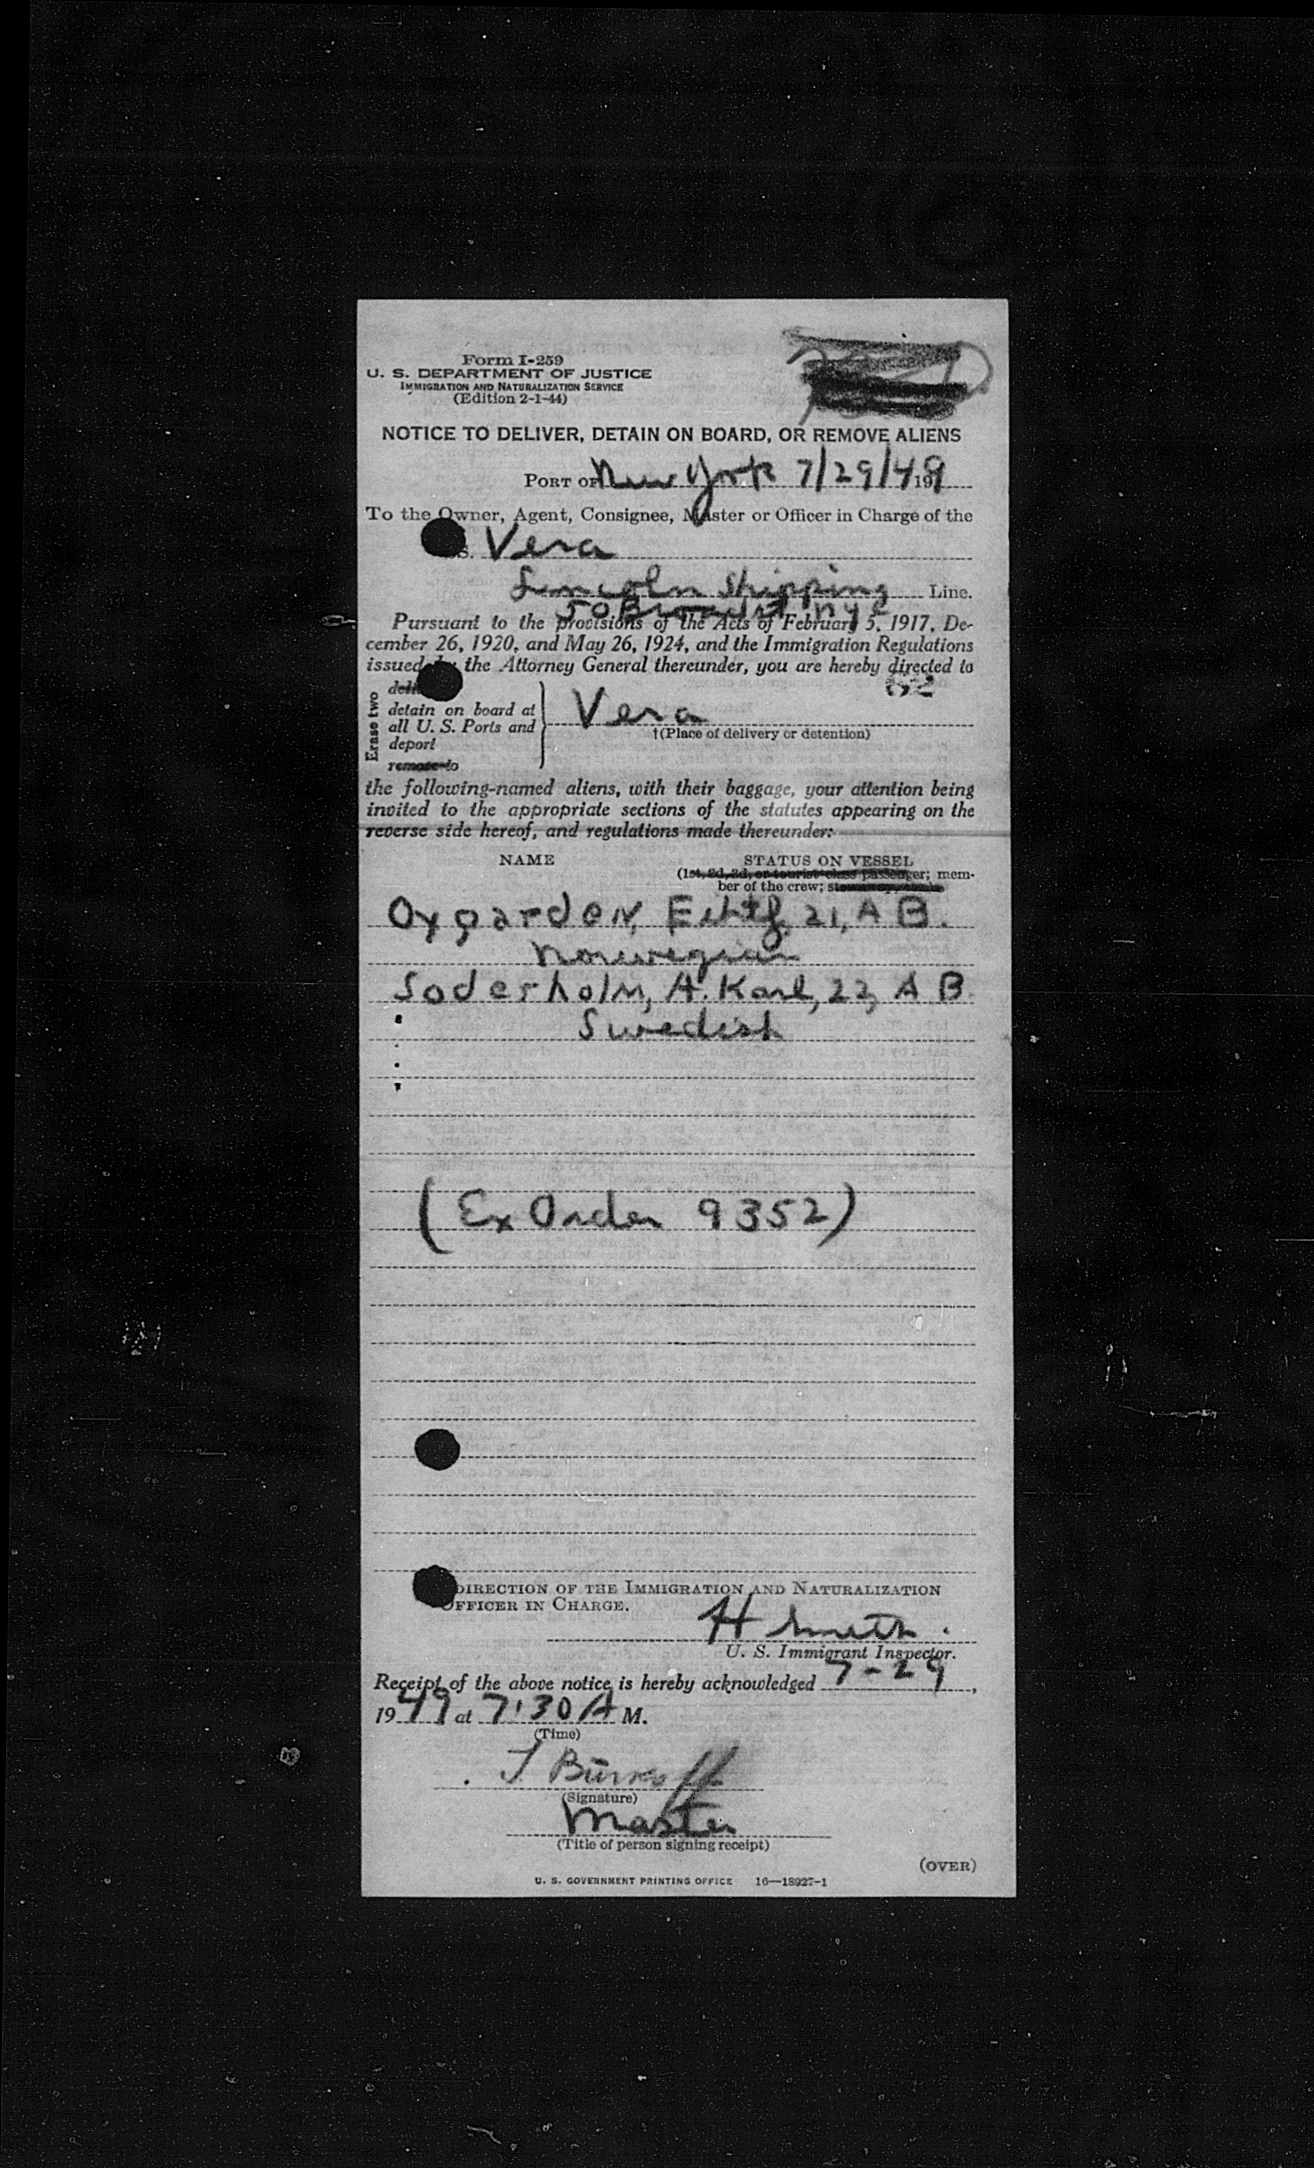 Form I-259
U. S. DEPARTMENT OF JUSTICE
IMMIGRATION AND NATURALIZATION SERVICE
(Edition 2-1-44)
NOTICE TO DELIVER, DETAIN ON BOARD, OR REMOVE ALIENS
PORT OF New York 7/29/49 19
To the Owner, Agent, Consignee, Master or Officer in Charge of the
S. Vera
Lincoln Shipping Line.
50 Broad St. NYC
Pursuant to the provisions of the Acts of February 5, 1917, De-
cember 26, 1920, and May 26, 1924, and the Immigration Regulations
issued by the Attorney General thereunder, you are hereby directed to
52
Erase two
detain on board at
all U. S. Ports and
deport
remove to
Vera
†(Place of delivery or detention)
the following-named aliens, with their baggage, your attention being
invited to the appropriate sections of the statutes appearing on the
reverse side hereof, and regulations made thereunder:
NAME STATUS ON VESSEL
(1st, 2d, 3d, or tourist class passenger; mem-
ber of the crew;
Oygarden, 21, A B.
Norwegian
Soderholm, A. Karl, 22, A B.
Swedish
(Ex Order 9352)
DIRECTION OF THE IMMIGRATION AND NATURALIZATION
OFFICER IN CHARGE.
H Smith.
U. S. Immigrant Inspector.
Receipt of the above notice is hereby acknowledged 7-29,
1949 at 7:30 A M.
(Time)
(Signature)
Master
(Title of person signing receipt)
(OVER)
U. S. GOVERNMENT PRINTING OFFICE 16—18927-1